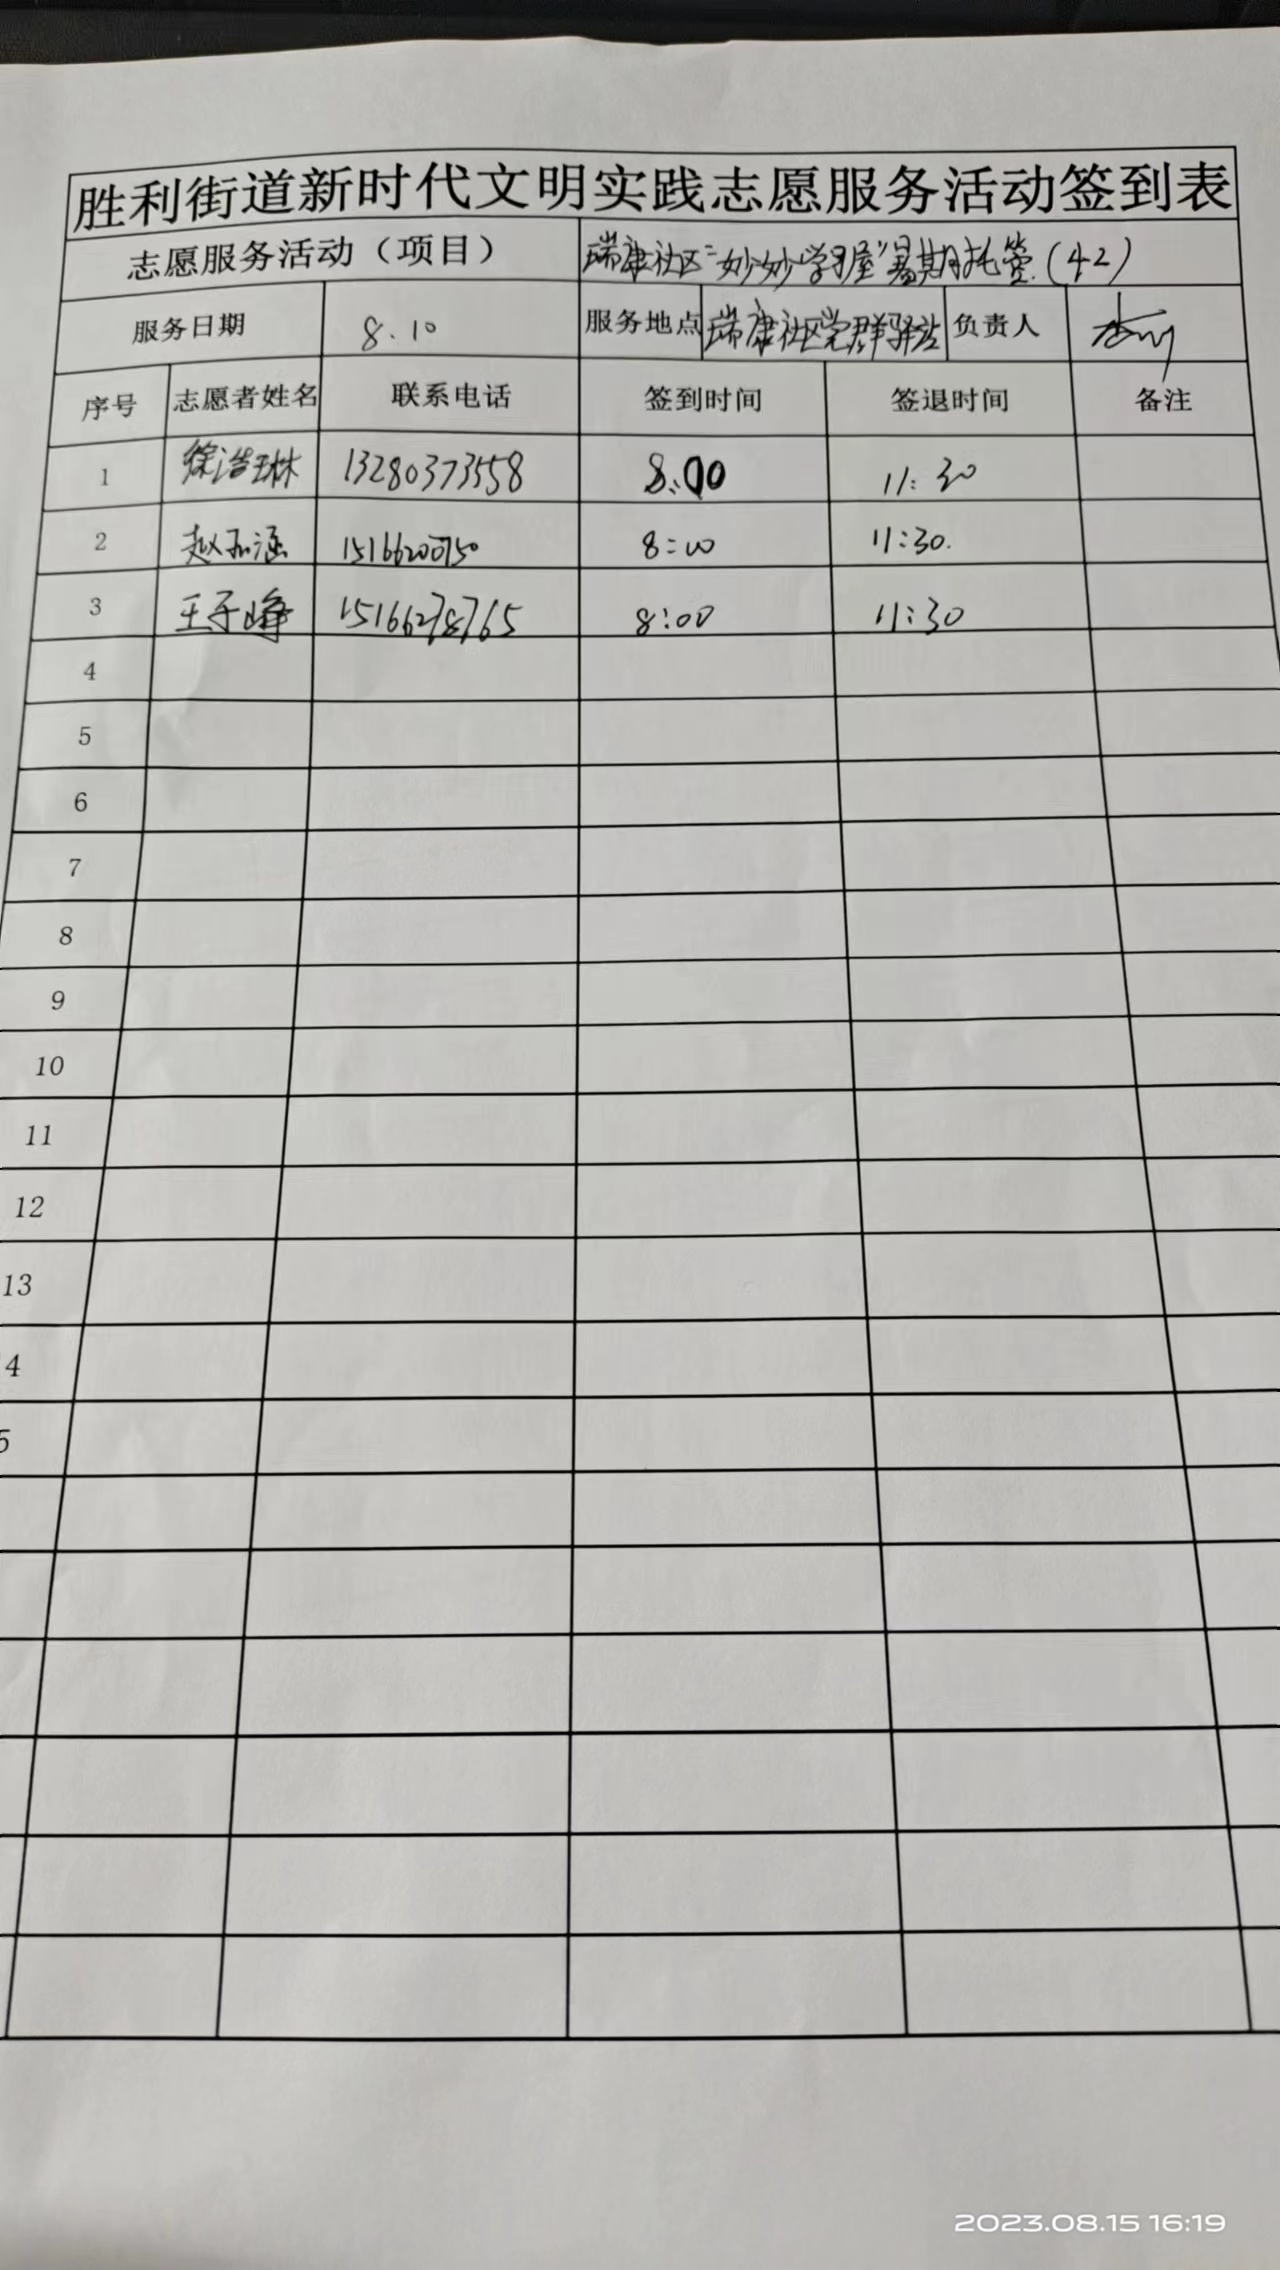 胜利街道新时代文明实践志愿服务活动签到表
志愿服务活动（项目） 瑞康社区“妙妙学习屋”暑期托管（42）
服务日期 8.10 服务地点 瑞康社区党群驿站 负责人
序号 志愿者姓名 联系电话 签到时间 签退时间 备注
1 徐浩琳 13280373558 8:00 11:30
2 15166200750 8:00 11:30.
3 王子峰 15166278765 8:00 11:30
4
5
6
7
8
9
10
11
12
13
4
5
2023.08.15 16:19